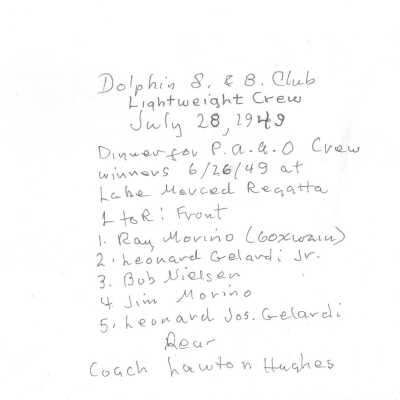 Dolphin S. & B. Club
Lightweight Crew
July 28, 1949
Dinner for P.a.a.O Crew
winners 6/26/49 at
Lake Merced Regatta
L to R: Front
1. Ray Morino (Coxwain)
2. Leonard Gelardi Jr.
3. Bob Nielsen
4 Jim Morino
5. Leonard Jos. Gelardi
Rear
Coach Lawton Hughes